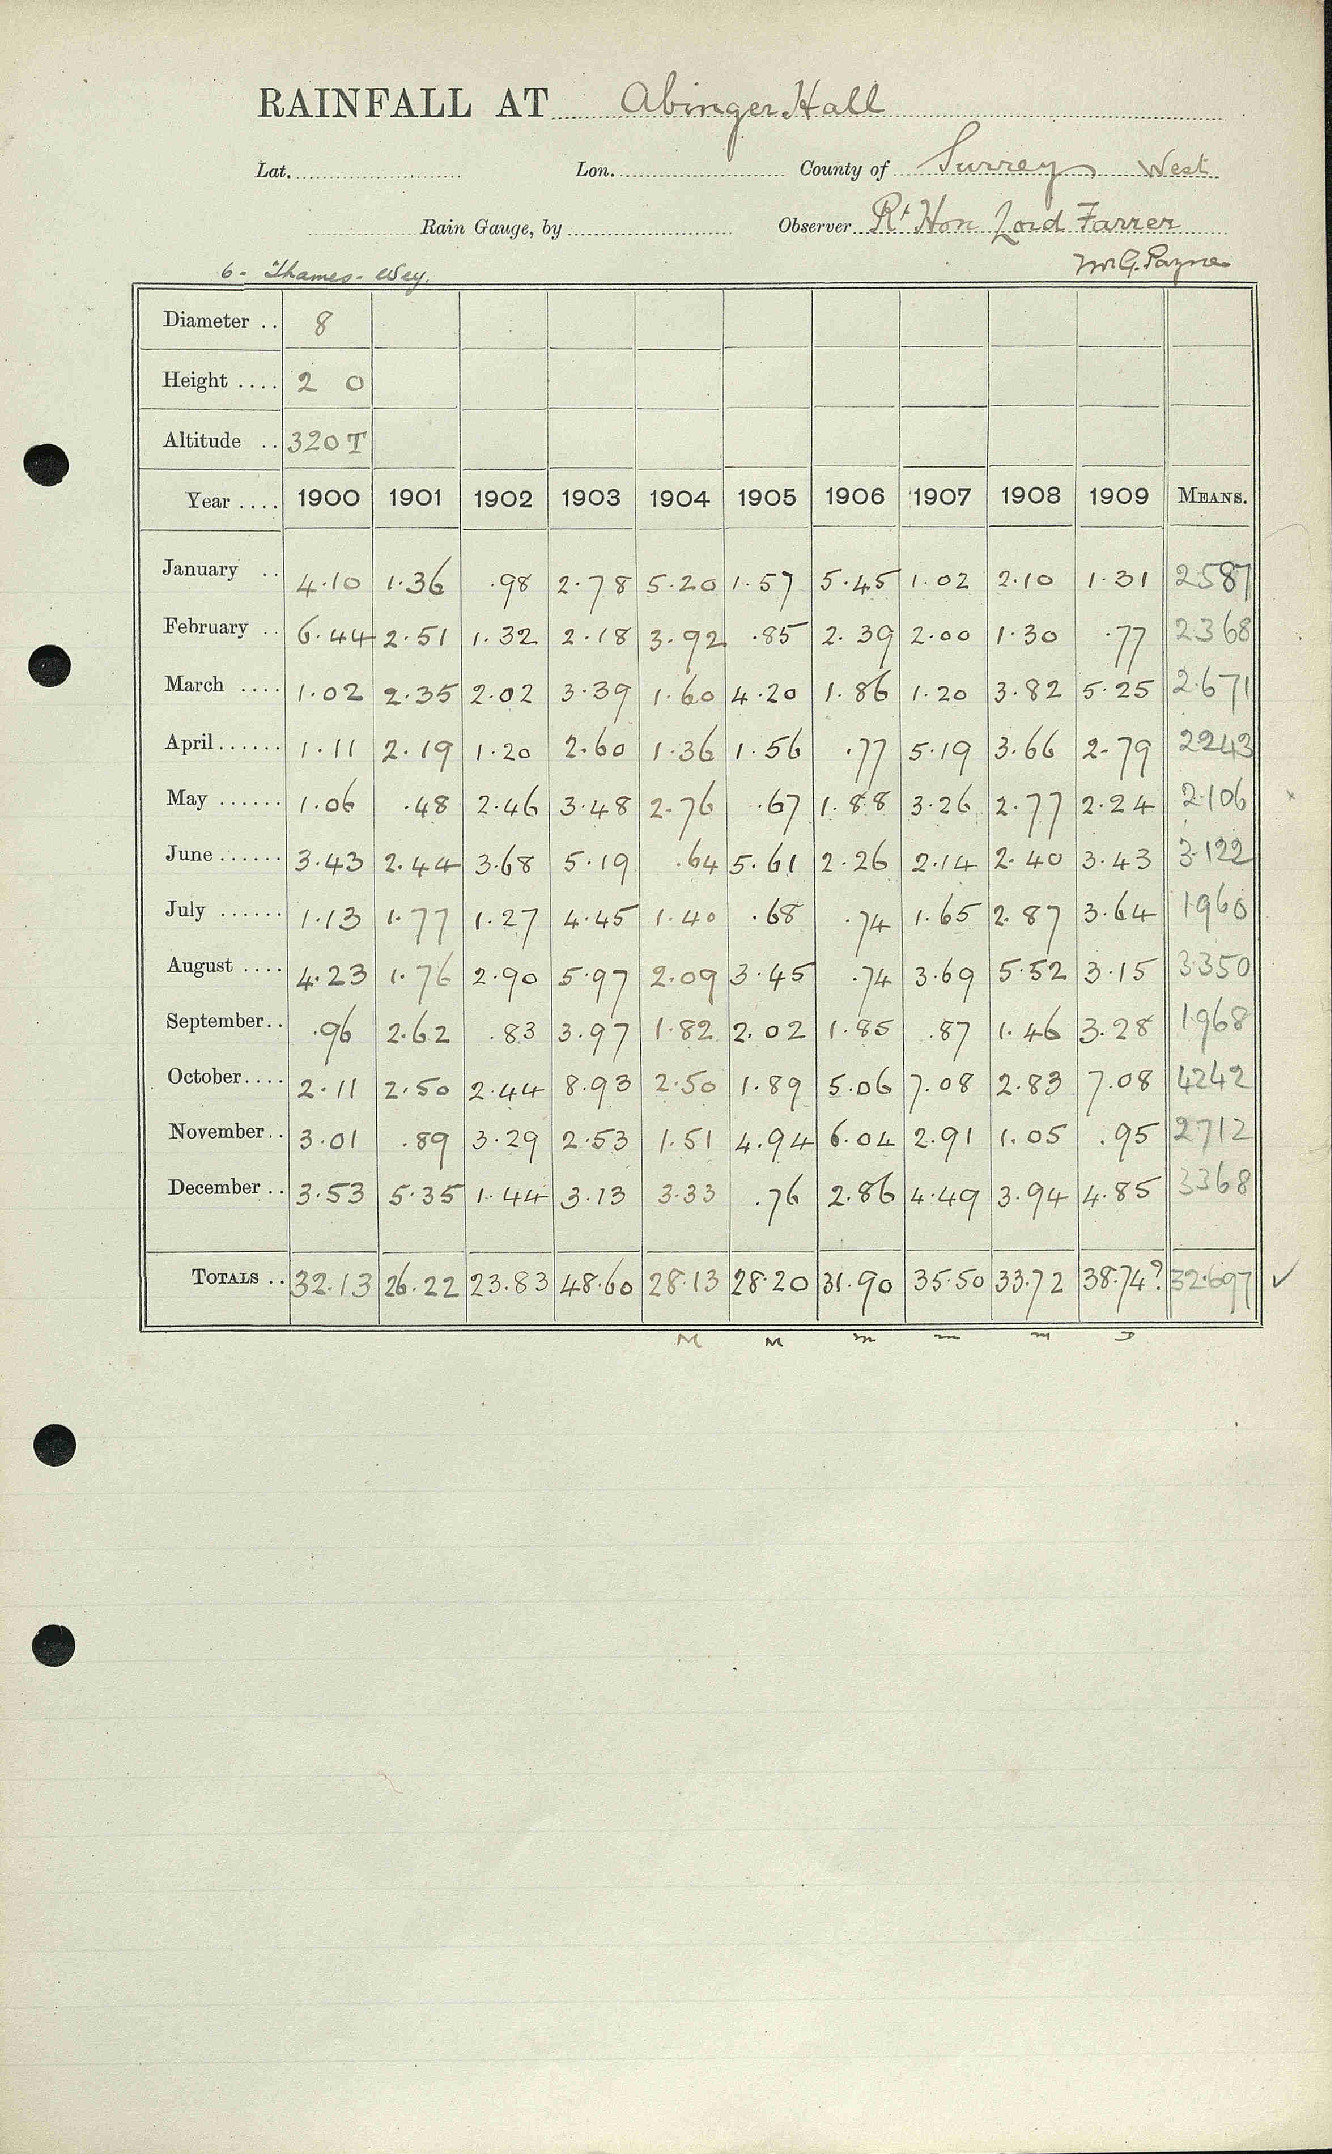 RAINFALL AT Abinger Hall
Lat. Lon. County of Surrey West
Rain Gauge, by Observer Rt Hon Lord Farrer
Mr G. Payne
6 - Thames - Wey.
Diameter .. 8
Height .... 2 0
Altitude .. 320 T
Year .... 1900 1901 1902 1903 1904 1905 1906 1907 1908 1909 MEANS.
January .. 4.10 1.36 .98 2.78 5.20 1.57 5.45 1.02 2.10 1.31 2587
February .. 6.44 2.51 1.32 2.18 3.92 .85 2.39 2.00 1.30 .77 2368
March .... 1.02 2.35 2.02 3.39 1.60 4.20 1.86 1.20 3.82 5.25 2.671
April ...... 1.11 2.19 1.20 2.60 1.36 1.56 .77 5.19 3.66 2.79 2243
May ...... 1.06 .48 2.46 3.48 2.76 .67 1.88 3.26 2.77 2.24 2.106
June ...... 3.43 2.44 3.68 5.19 .64 5.61 2.26 2.14 2.40 3.43 3.122
July ...... 1.13 1.77 1.27 4.45 1.40 .68 .74 1.65 2.87 3.64 1960
August .... 4.23 1.76 2.90 5.97 2.09 3.45 .74 3.69 5.52 3.15 3.350
September .. .96 2.62 .83 3.97 1.82 2.02 1.85 .87 1.46 3.28 1968
October .... 2.11 2.50 2.44 8.93 2.50 1.89 5.06 7.08 2.83 7.08 4242
November .. 3.01 .89 3.29 2.53 1.51 4.94 6.04 2.91 1.05 .95 2712
December .. 3.53 5.35 1.44 3.13 3.33 .76 2.86 4.49 3.94 4.85 3368
TOTALS .. 32.13 26.22 23.83 48.60 28.13 28.20 31.90 35.50 33.72 38.74? 32.697 ✓
M M m m m D